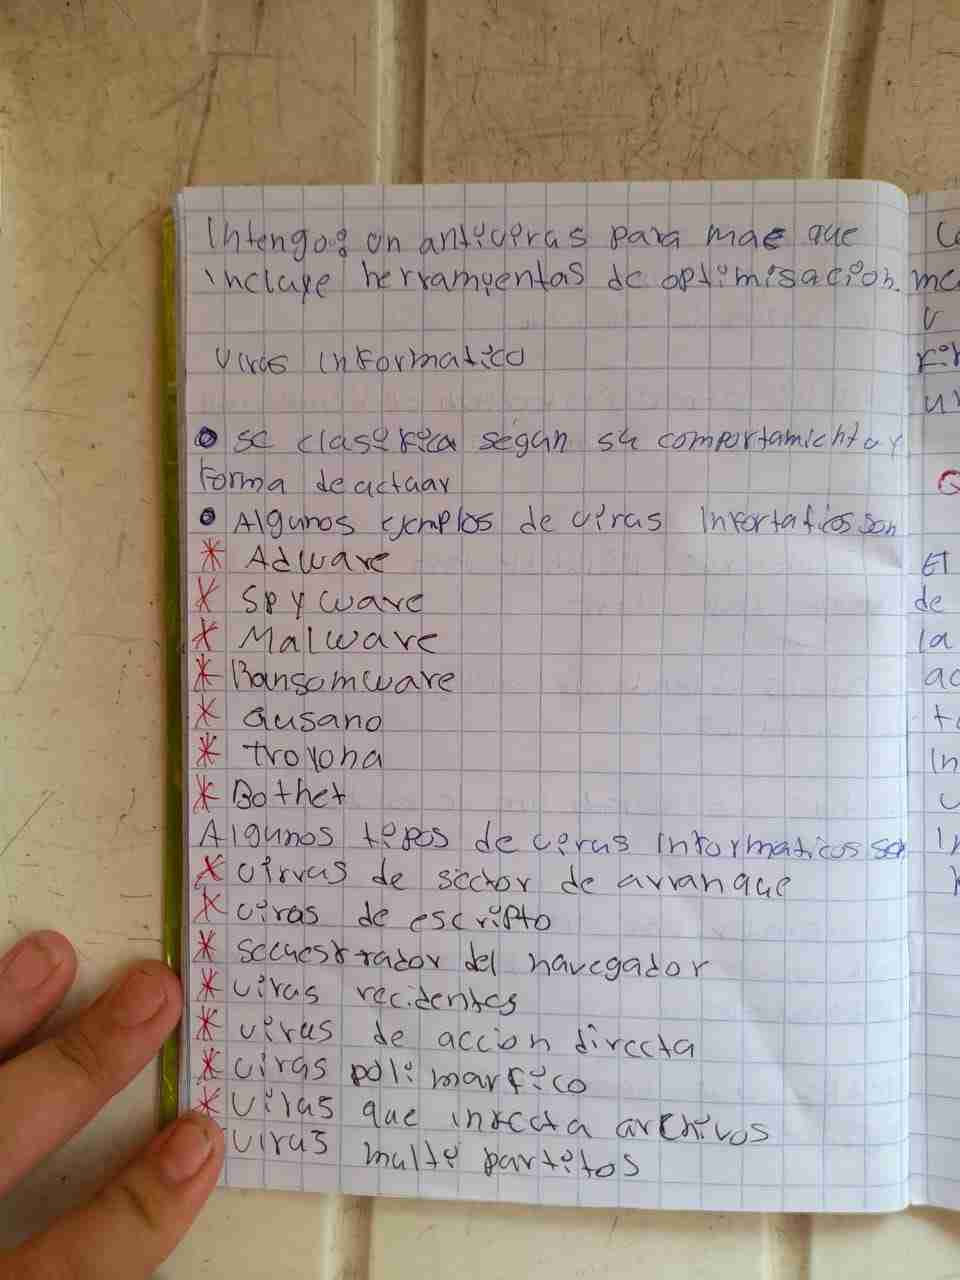 Intengo: un antiviras para mac que
incluye herramyentas de optimisacion.
Viras informatico
se clasifica segun su comportamiento y
forma de actuar
Algunos ejemplos de viras infortaticos son
Adware
Spyware
Malware
Ransomware
Gusano
troyona
Bothet
Algunos tipos de virus informaticos son
virvas de sector de arranque
viras de escripto
secuestrador del navegador
viras recidentes
virus de accion directa
viras poli marfico
viras que infecta archivos
viras multi partitos
El
de
la